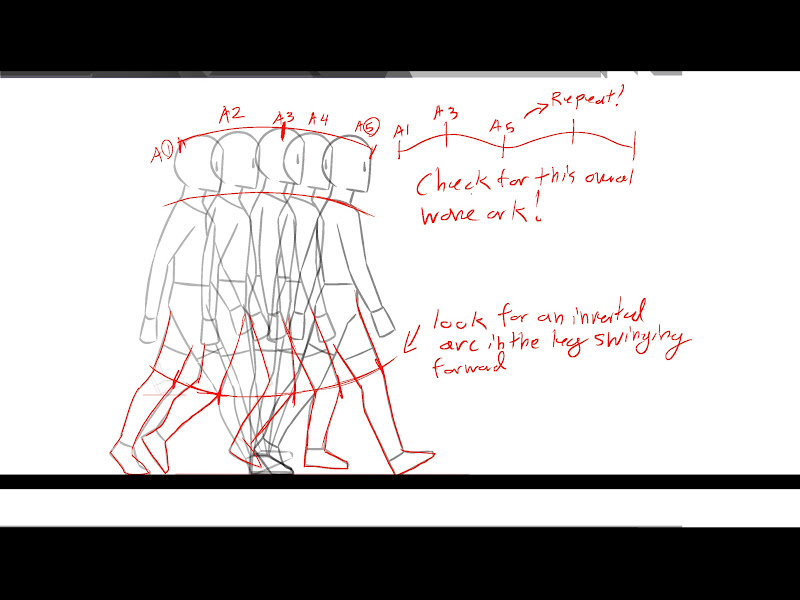 A1 A2 A3 A4 A5
A1 A3 A5 Repeat!
Check for this overal
wave ark!
look for an inverted
arc in the leg swinging
forward